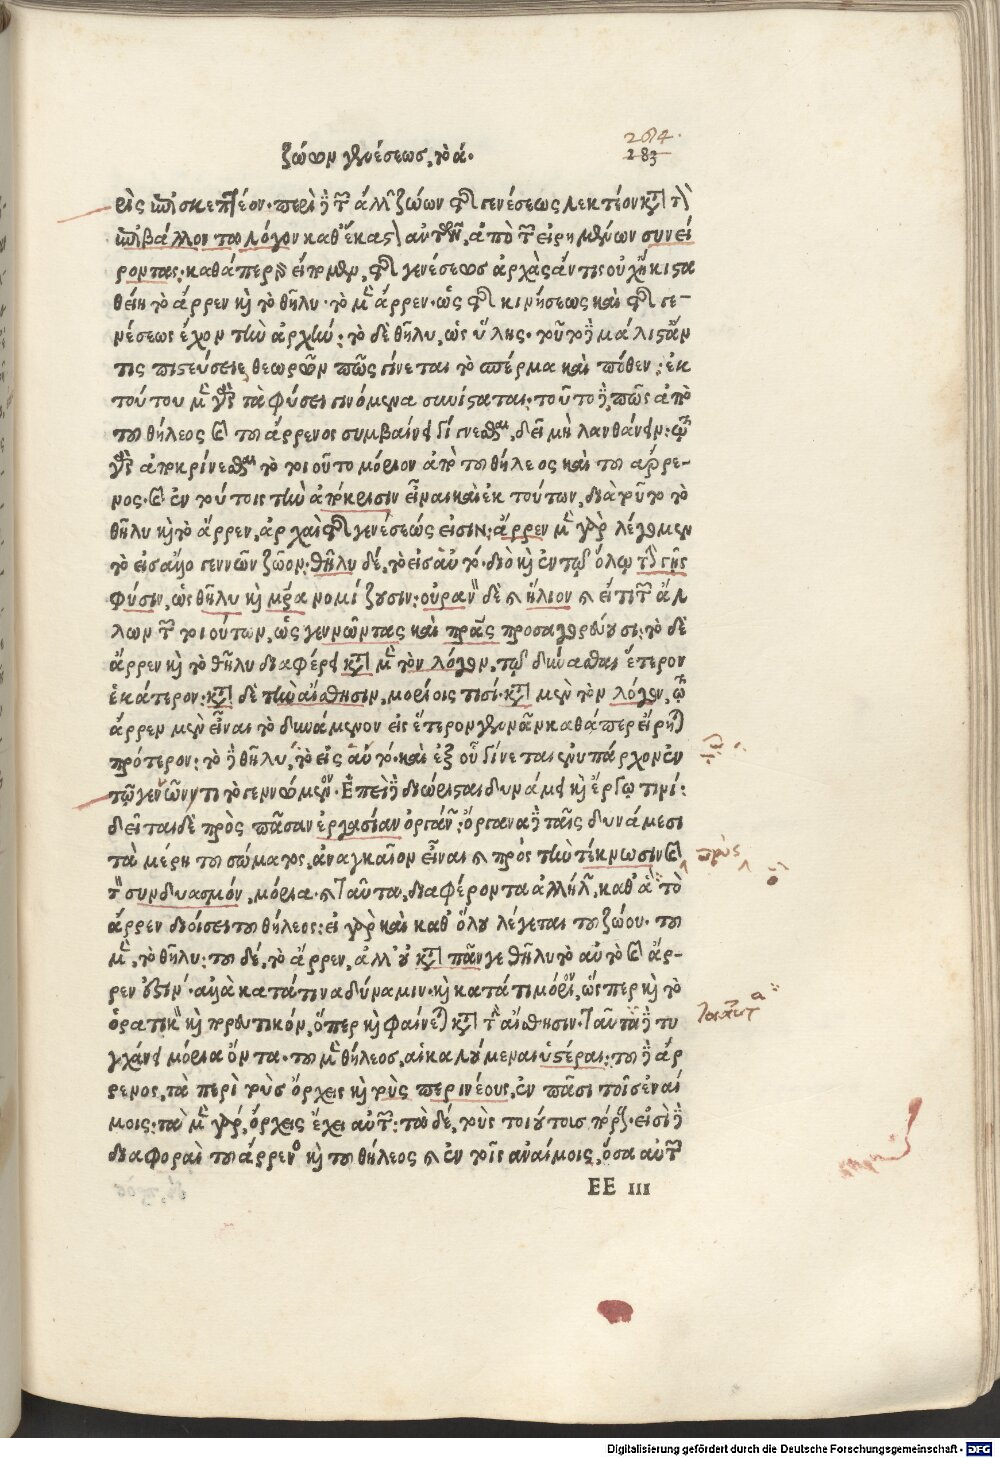 ζώων γενέσεως, τὸ ά.
264.
283
ρὶς ἐπισκεπτέον. περὶ δὲ τῶν ἄλλων ζώων τῆς γενέσεως λεκτέον κατὰ τὸν
ἐπιβάλλοντα λόγον καθ' ἕκαστον αὐτῶν, ἀπὸ τῶν εἰρημένων συνεί
ροντας· καθάπερ γὰρ εἴπομεν, τῆς γενέσεως ἀρχὰς ἄν τις οὐχ ἥκιστα
θείη τὸ ἄρρεν καὶ τὸ θῆλυ· τὸ μὲν ἄρρεν. ὡς τῆς κινήσεως καὶ τῆς γε-
νέσεως ἔχον τὴν ἀρχήν: τὸ δὲ θῆλυ, ὡς ὕλης. τοῦτο δὲ μάλιστ' ἄν
τις πιστεύσειε, θεωρῶν πῶς γίνεται τὸ σπέρμα καὶ πόθεν: ἐκ
τούτου μὲν γὰρ τὰ φύσει γινόμενα συνίσταται. τοῦτο δὲ, πῶς ἀπὸ
τοῦ θήλεος καὶ τοῦ ἄρρενος συμβαίνει γίγνεσθαι, δεῖ μὴ λανθάνειν: τῷ
γὰρ ἀποκρίνεσθαι τὸ τοιοῦτο μόριον ἀπὸ τοῦ θήλεος καὶ τοῦ ἄρρε-
νος. καὶ ἐν τούτοις τὴν ἀπόκρισιν εἶναι καὶ ἐκ τούτων, διὰ τοῦτο τὸ
θῆλυ καὶ τὸ ἄρρεν, ἀρχαὶ τῆς γενέσεώς εἰσιν: ἄρρεν μὲν γὰρ λέγομεν
τὸ εἰς ἄλλο γεννῶν ζῶον. θῆλυ δέ, τὸ εἰς αὐτό. διὸ καὶ ἐν τῷ ὅλῳ τὴν γῆς
φύσιν, ὡς θῆλυ καὶ μητέρα νομίζουσιν: οὐρανὸν δὲ καὶ ἥλιον καὶ εἴ τι τῶν ἄλ
λων τῶν τοιούτων, ὡς γεννῶντας καὶ πατέρας προσαγορεύουσι: τὸ δὲ
ἄρρεν καὶ τὸ θῆλυ διαφέρει κατὰ μὲν τὸν λόγον, τῷ δύνασθαι ἕτερον
ἑκάτερον: κατὰ δὲ τὴν αἴσθησιν, μορίοις τισί. κατὰ μὲν τὸν λόγον, τῷ
ἄρρεν μὲν εἶναι τὸ δυνάμενον εἰς ἕτερον γεννᾶν καθάπερ εἴρηται
πρότερον: τὸ δὲ θῆλυ, τὸ εἰς αὐτό. καὶ ἐξ οὗ γίνεται ἐνυπάρχον ἐν
τῷ γεννῶντι τὸ γεννώμενον. Ἐπεὶ δὲ διώρισται δυνάμει καὶ ἔργῳ τινί:
δεῖται δὲ πρὸς πᾶσαν ἐργασίαν ὀργάνων: ὄργανα δὲ ταῖς δυνάμεσι
τὰ μέρη τοῦ σώματος, ἀναγκαῖον εἶναι καὶ πρὸς τὴν τέκνωσιν καὶ
πρὸς
τὸν συνδυασμόν, μόρια. καὶ ταῦτα, διαφέροντα ἀλλήλων, καθ' ἃ τὸ
ἄρρεν διοίσει τοῦ θήλεος: εἰ γὰρ καὶ καθ' ὅλου λέγεται τοῦ ζώου. τοῦ
μὲν, τὸ θῆλυ: τοῦ δέ, τὸ ἄρρεν, ἀλλ' οὐ κατὰ πᾶν γε θῆλυ τὸ αὐτὸ καὶ ἄρ-
ρεν ἐστίν. ἀλλὰ κατά τινα δύναμιν. καὶ κατά τι μόριον, ὥσπερ καὶ τὸ
ὁρατικὸν καὶ πορευτικόν, ὅπερ καὶ φαίνεται κατὰ τὴν αἴσθησιν. ταῦτα δὲ τυ
γχάνει μόρια ὄντα. τοῦ μὲν θήλεος, αἱ καλούμεναι ὑστέραι: τοῦ δὲ ἄρ
ρενος, τὰ περὶ τοὺς ὄρχεις καὶ τοὺς περινέους, ἐν πᾶσι τοῖς ἐναί
μοις: τὰ μὲν γάρ, ὄρχεις ἔχει αὐτῶν: τὰ δέ, τοὺς τοιούτους πόρους. εἰσὶ δὲ
διαφοραὶ τοῦ ἄρρενος καὶ τοῦ θήλεος καὶ ἐν τοῖς ἀναίμοις, ὅσα αὐτῶν
EE III
Digitalisierung gefördert durch die Deutsche Forschungsgemeinschaft - DFG